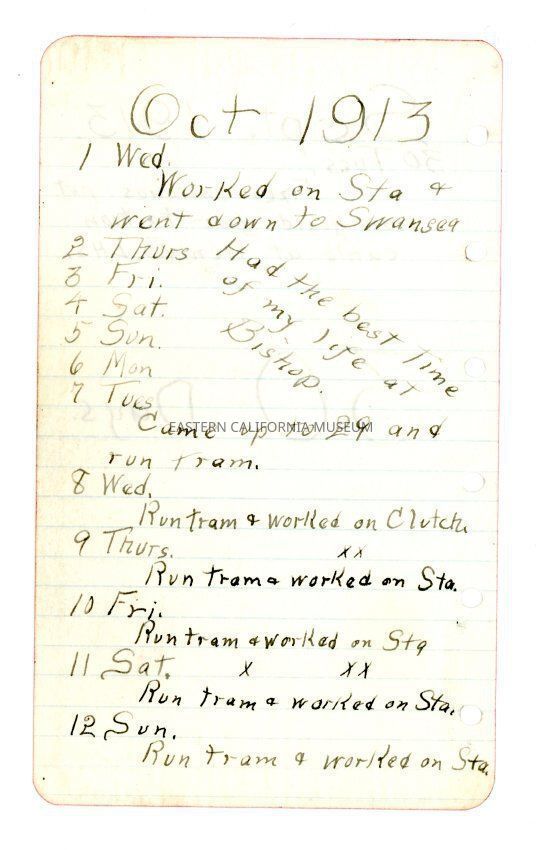 Oct 1913
1 Wed.
Worked on Sta &
went down to Swansea
2 Thurs Had the best Time
3 Fri. of my life at
4 Sat. Bishop.
5 Sun.
6 Mon
7 Tues
Came up to 29 and
EASTERN CALIFORNIA MUSEUM
run tram.
8 Wed.
Run tram & worked on Clutch
9 Thurs. xx
Run tram & worked on Sta.
10 Fri.
Run tram & worked on Sta
11 Sat. x xx
Run tram & worked on Sta.
12 Sun.
Run tram & worked on Sta.